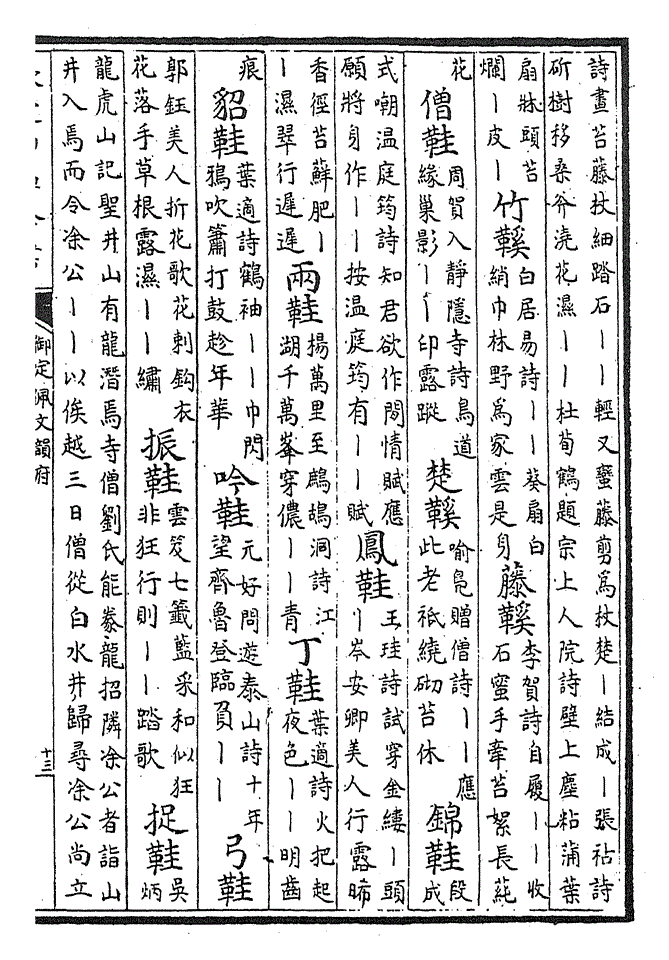 詩畫苔藤杖細踏石丨丨輕又蠻藤剪爲杖楚丨結成丨張祜詩
斫樹移桑斧澆花濕丨丨杜荀鶴題宗上人院詩壁上塵粘蒲葉
扇牀頭苔
爛丨皮丨
竹鞵
白居易詩丨丨葵扇白
綃巾林野爲家雲是身
藤鞵
李賀詩自履丨丨收
石蜜手牽苔絮長蓴
花
僧鞋
周賀入靜隱寺詩鳥道
緣巢影丨丨印露蹤
楚鞵
喻鳧贈僧詩丨丨應
此老秖繞砌苔休
錦鞋
段
成
式嘲温庭筠詩知君欲作閒情賦應
願將身作丨丨按温庭筠有丨丨賦
鳳鞋
王珪詩試穿金縷丨頭
丨岑安卿美人行露晞
香徑苔蘚肥丨
丨濕翠行遲遲
兩鞋
揚萬里至鷓鴣洞詩江
湖千萬峯穿儂丨丨青
丁鞋
葉適詩火把起
夜色丨丨明齒
痕
貂鞋
葉適詩鶴袖丨丨巾閃
鴉吹簫打鼓趁年華
吟鞋
元好問遊泰山詩十年
望齊魯登臨負丨丨
弓鞋
郭鈺美人折花歌花刺鈎衣
花落手草根露濕丨丨繡
振鞋
雲笈七籤藍采和似狂
非狂行則丨丨踏歌
捉鞋
吳
炳
龍虎山記聖井山有龍潛焉寺僧劉氏能豢龍招隣凃公者詣山
井入焉而令凃公丨丨以俟越三日僧從白水井歸尋凃公尚立
御定佩文韻府
十三